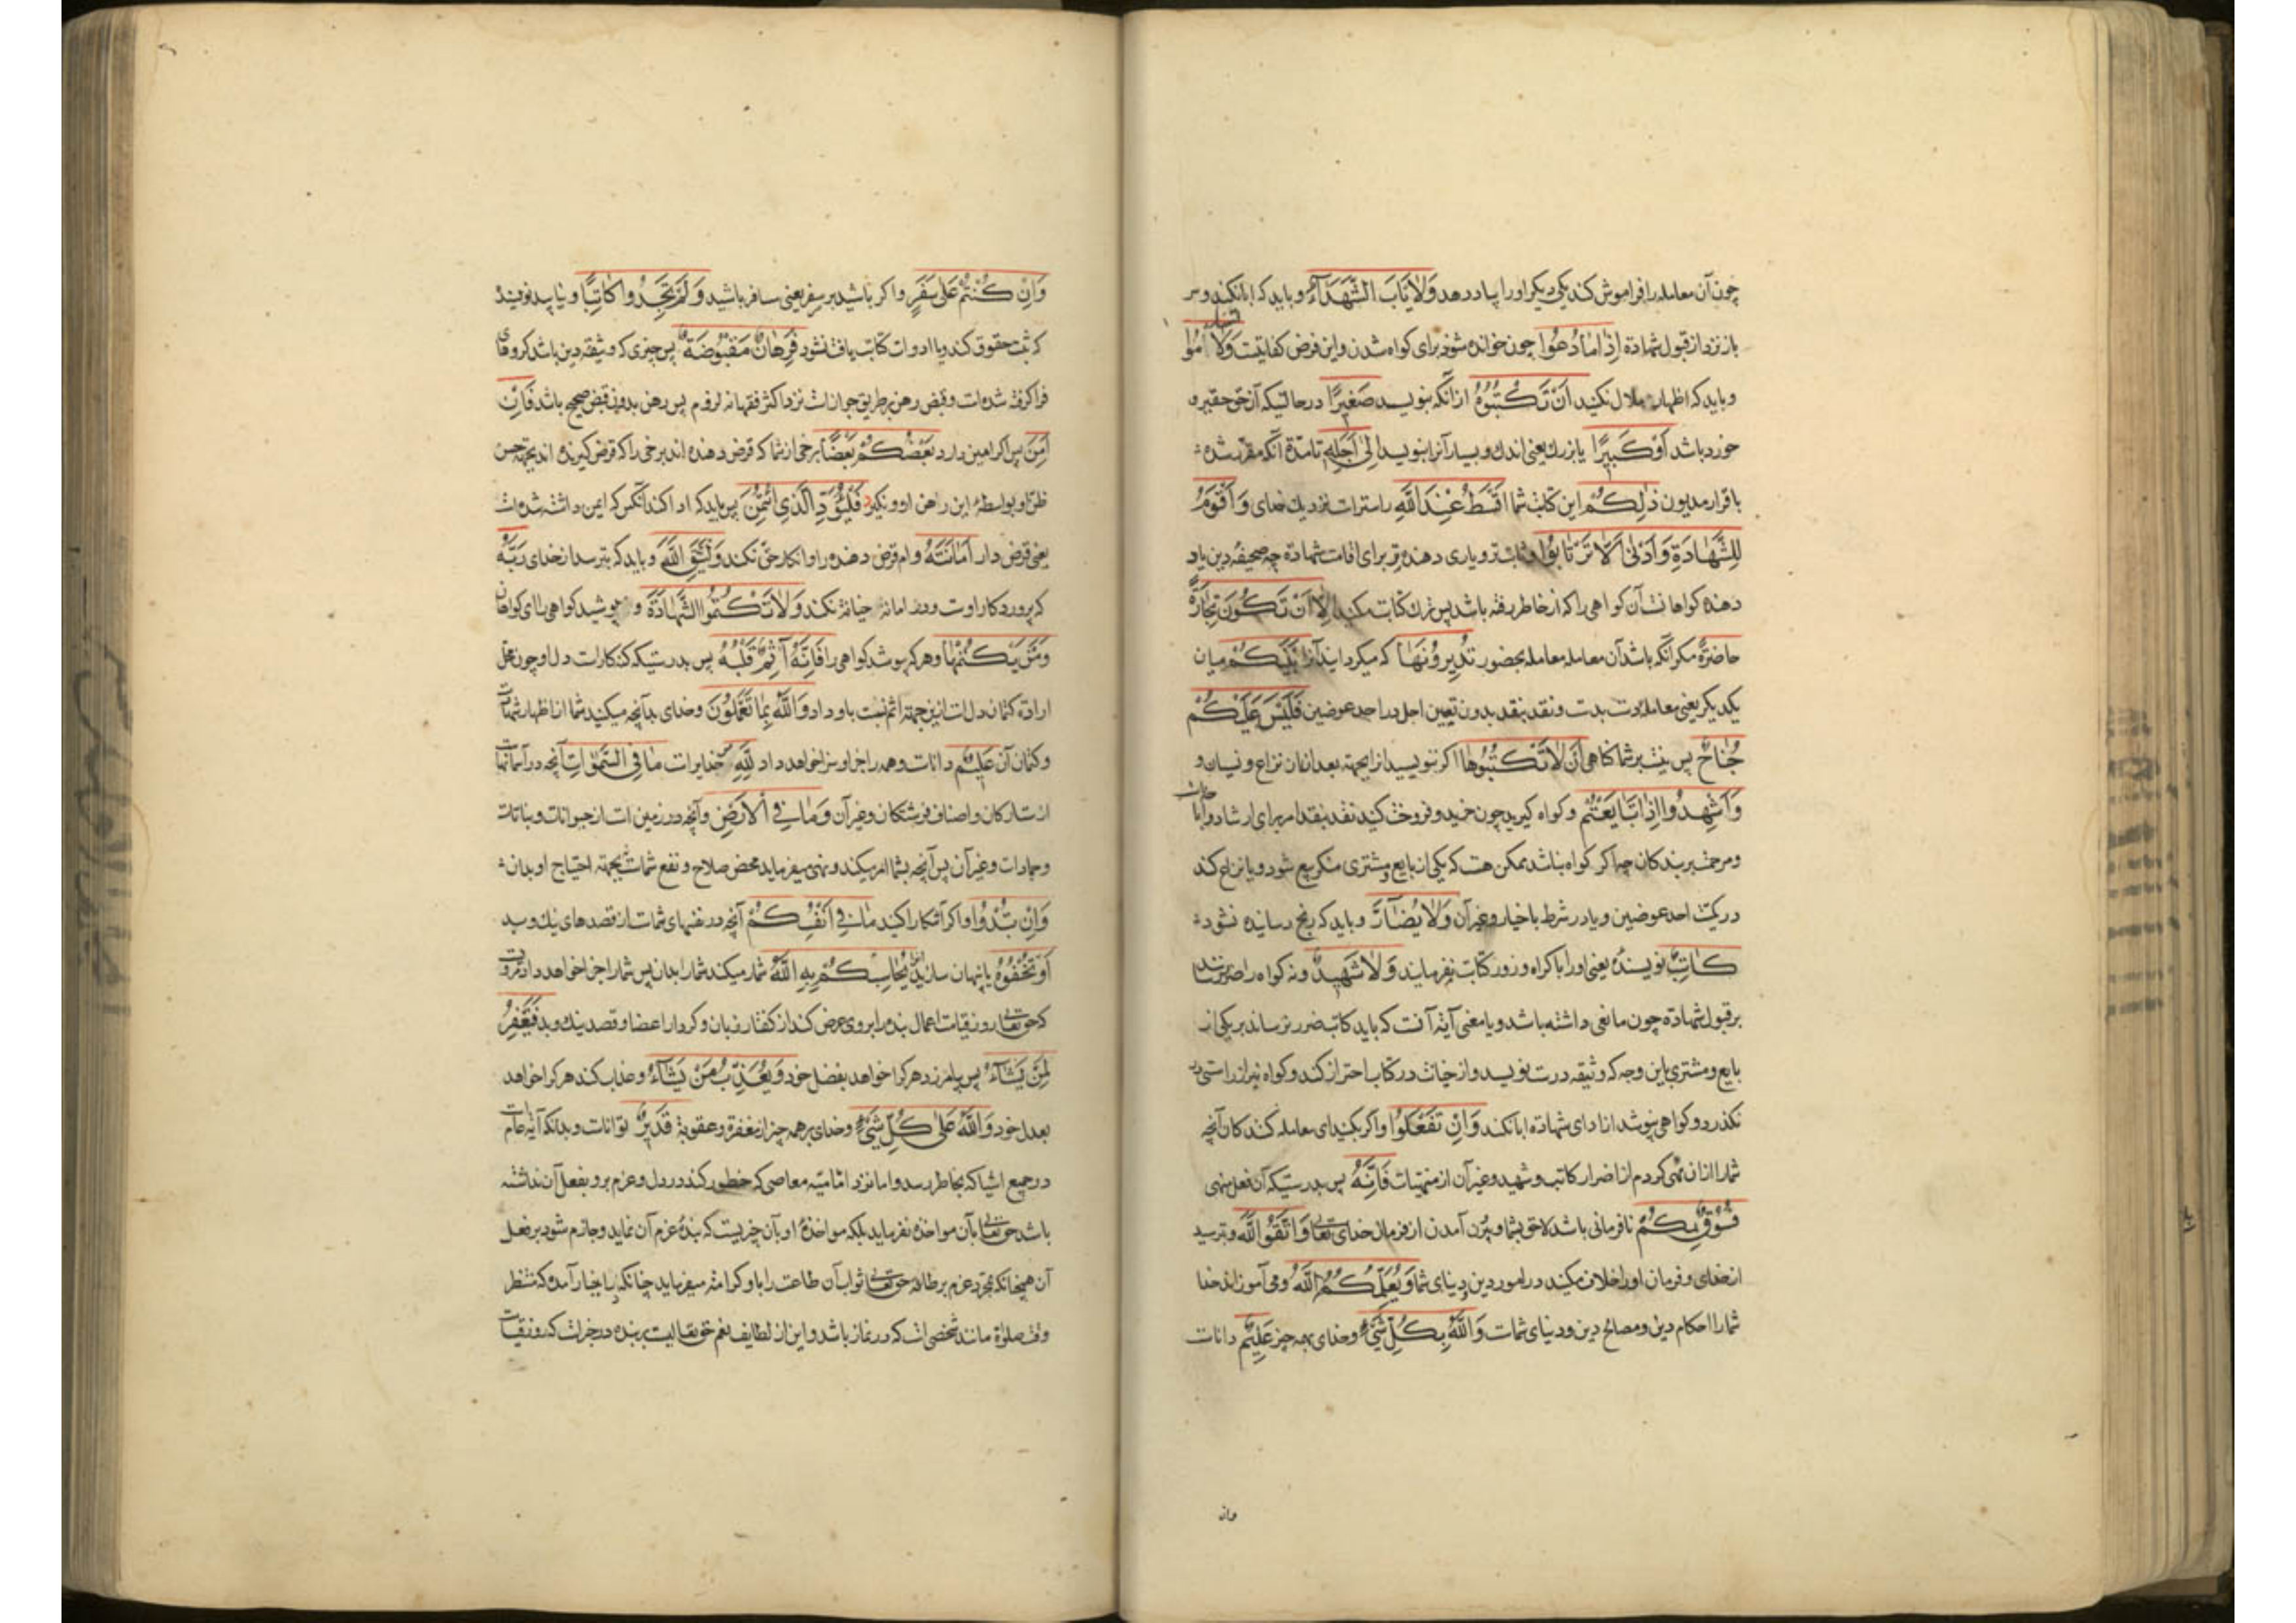 چون آن معامله را فراموش کند یکی دیگر او را بیاد دهد وَلَا يَأْبَ الشُّهَدَآءُ و باید که ابا نکنند و سر
باز نزند از قبول شهادة اِذَا مَا دُعُوا چون خوانده شوند برای کواه شدن و این فرض کفایتست وَلَا تَسْأَمُوا
و باید که اظهار ملال نکنید اَنْ تَكْتُبُوهُ از آنکه بنویسید صَغِيرًا در حالتیکه آن حق حقیر و
خورد باشد اَوْ كَبِيرًا یا بزرك یعنی اندك و بسیار آنرا بنویسید اِلٰى اَجَلِهٖ تا مدّة آنکه مقرر شده
باقرار مدیون ذٰلِكُمْ این کتابت شما اَقْسَطُ عِنْدَ اللّٰهِ راستراست نزدیك خدای وَاَقْوَمُ
لِلشَّهَادَةِ وَاَدْنٰى اَلَّا تَرْتَابُوا و ثابت‌تر و یاری دهنده‌تر برای اقامت شهادة چه صحیفهٔ دین یاد
دهنده کواهانست آن کواهی را که از خاطر رفته باشد پس ترك کتابت مکنید اِلَّا اَنْ تَكُونَ تِجَارَةً
حَاضِرَةً مکر آنکه باشد آن معامله معامله بحضور تُدِيرُونَهَا که میکردانید آنرا بَيْنَكُمْ میان
یکدیکر یعنی معامله دست بدست و نقد بنقد بدون تعیین اجل در احد عوضین فَلَيْسَ عَلَيْكُمْ
جُنَاحٌ پس نیست بر شما کناهی اَنْ لَا تَكْتُبُوهَا اکر ننویسید از آنجهته بعد از آن نزاع و نسیان و
وَاَشْهِدُوا اِذَا تَبَايَعْتُمْ و کواه کیرید چون خرید و فروخت کنید نقد بنقد امر برای ارشاد و
و مرحمت بر بندکان چه اکر کواه نباشد ممکن هست که یکی از بایع و مشتری منکر بیع شود و یا نزاع کند
در کمیت احد عوضین و یا در شرط یا خیار و غیر آن وَلَا يُضَآرَّ و باید که رنج رسانیده نشود
كَاتِبٌ نویسنده یعنی او را باکراه و زور کتابت نفرمایند وَلَا شَهِيدٌ و نه کواه را ضرر رسانند
بر قبول شهادة چون مانعی داشته باشد و یا معنی آیة آنست که باید کاتب ضرر نرساند بر یکی از
بایع و مشتری باین وجه که وثیقه درست نویسد و از خیانت در کتاب احتراز کند و کواه نیز از راستی
نکذرد و کواهی نپوشد از ادای شهادة ابا نکند وَاِنْ تَفْعَلُوا و اکر بکنید ای معامله کنندکان آنچه
شما را از آن نهی کردم از اضرار کاتب و شهید و غیر آن از منهیات فَاِنَّهُ پس بدرستیکه آن فعل منهی
فُسُوقٌ بِكُمْ نافرمانی باشد لاحق بشما و بیرون آمدن از فرمان خدای تعالی وَاتَّقُوا اللّٰهَ و بترسید
از خدای و فرمان او را خلاف مکنید در امور دین و دنیای شما وَيُعَلِّمُكُمُ اللّٰهُ و می آموزاند خدا
شما را احکام دین و مصالح دین و دنیای شماست وَاللّٰهُ بِكُلِّ شَيْءٍ و خدای بهمه چیز عَلِيمٌ داناست
وان
وَاِنْ كُنْتُمْ عَلٰى سَفَرٍ و اکر باشید بر سفر یعنی مسافر باشید وَلَمْ تَجِدُوا كَاتِبًا و نیابید نویسندهٔ
که ثبت حقوق کند و یا ادوات کتابت یافت نشود فَرِهَانٌ مَقْبُوضَةٌ پس چیزی که وثیقه دین باشد کروهای
فرا کرفته شده است و قبض رهن بر طریق جواز است نزد اکثر فقها نه لزوم پس رهن بدون قبض صحیح باشد فَاِنْ
اَمِنَ پس اکر امین دارد بَعْضُكُمْ بَعْضًا برخی از شما که قرض دهنده اند برخی را که قرض کیرنده اند بجهته حسن
ظن او بواسطهٔ این رهن از و نکیرد فَلْيُؤَدِّ الَّذِي اؤْتُمِنَ پس باید که ادا کند آنکس که ایمن داشته شده است
یعنی قرض دار اَمَانَتَهُ وام قرض دهنده را و انکار حق نکند وَلْيَتَّقِ اللّٰهَ و باید که بترسد از خدای رَبَّهُ
که پروردکار اوست و در امانة خیانة نکند وَلَا تَكْتُمُوا الشَّهَادَةَ و مپوشید کواهی را ای کواهان
وَمَنْ يَكْتُمْهَا و هر که بپوشد کواهی را فَاِنَّهُ آثِمٌ قَلْبُهُ پس بدرستیکه کنهکار است دل او چون محل
ارادة کتمان دل است از ینجهته اثم نسبت باو داد وَاللّٰهُ بِمَا تَعْمَلُونَ و خدای بدآنچه میکنید شما از اظهار شهادت
و کتمان آن عَلِيمٌ داناست و همه را جزا و سزا خواهد داد لِلّٰهِ خدایراست مَا فِي السَّمٰوَاتِ آنچه در آسمانهاست
از ستارکان و اصناف فرشتکان و غیر آن وَمَا فِي الْاَرْضِ و آنچه در زمین است از حیوانات و نباتات
و جمادات و غیر آن پس آنچه بشما امر میکند و نهی میفرماید محض صلاح و نفع شماست نه بجهته احتیاج او بدان
وَاِنْ تُبْدُوا و اکر آشکارا کنید مَا فِي اَنْفُسِكُمْ آنچه در نفسهای شماست از قصدهای نیك و بد
اَوْ تُخْفُوهُ یا پنهان سازید آنرا يُحَاسِبْكُمْ بِهِ اللّٰهُ شمار میکند شما را بدان پس شما را جزا خواهد داد
که حق تعالی روز قیامت اعمال بنده را بر وی عرض کند از کفتار زبان و کردار اعضا و قصد نیك و بد فَيَغْفِرُ
لِمَنْ يَشَآءُ پس بیامرزد هر کرا خواهد بفضل خود وَيُعَذِّبُ مَنْ يَشَآءُ و عذاب کند هر کرا خواهد
بعدل خود وَاللّٰهُ عَلٰى كُلِّ شَيْءٍ و خدای بر همه چیز از مغفرة و عقوبة قَدِيرٌ تواناست و بدانکه آیة عام است
در جمیع اشیا که بخاطر رسد و اما نزد امامیّه معاصی که خطور کند در دل و عزم بر و بفعل آن نداشته
باشد حق تعالی بآن مواخذه نفرماید بلکه مواخذهٔ او بآن چیزیست که بندهٔ عزم آن نماید و جازم شود بر فعل
آن همچنانکه بمجرد عزم بر طاعة حق تعالی ثواب آن طاعت را باو کرامة میفرماید چنانکه باخبار آمده که منتظر
وقت صلوة مانند شخصی است که در نماز باشد و این از لطایف نعم حق تعالیست بر بنده در خبر است که روز قیامت